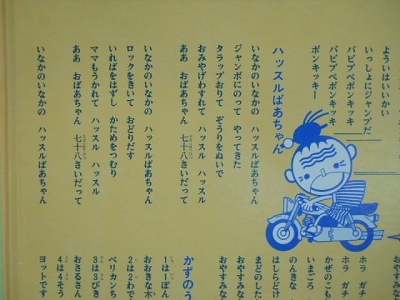 よういはいいかい
いっしょにジャンプだ
パピプペポンキッキ
パピプペポンキッキ
ポンキッキー
ハッスルばあちゃん
いなかのいなかの ハッスルばあちゃん
ジャンボにのって やってきた
タラップおりて ぞうりをぬいで
おみやげわすれて ハッスル ハッスル
ああ おばあちゃん 七十八さいだって
いなかのいなかの ハッスルばあちゃん
ロックをきいて おどりだす
いればをはずし かためをつむり
ママもうかれて ハッスル ハッスル
ああ おばあちゃん 七十八さいだって
いなかのいなかの ハッスルばあちゃん
ホラ ガチ
ホラ ガチ
かぜのこも
いまごろ
のんきな
はしらどけ
まどのした
おやすみな
おやすみな
かずのう
1は1ぽん
おおきな木
2は2わで
ペリカンち
3は3びき
おさるさん
4は4そう
ヨットです